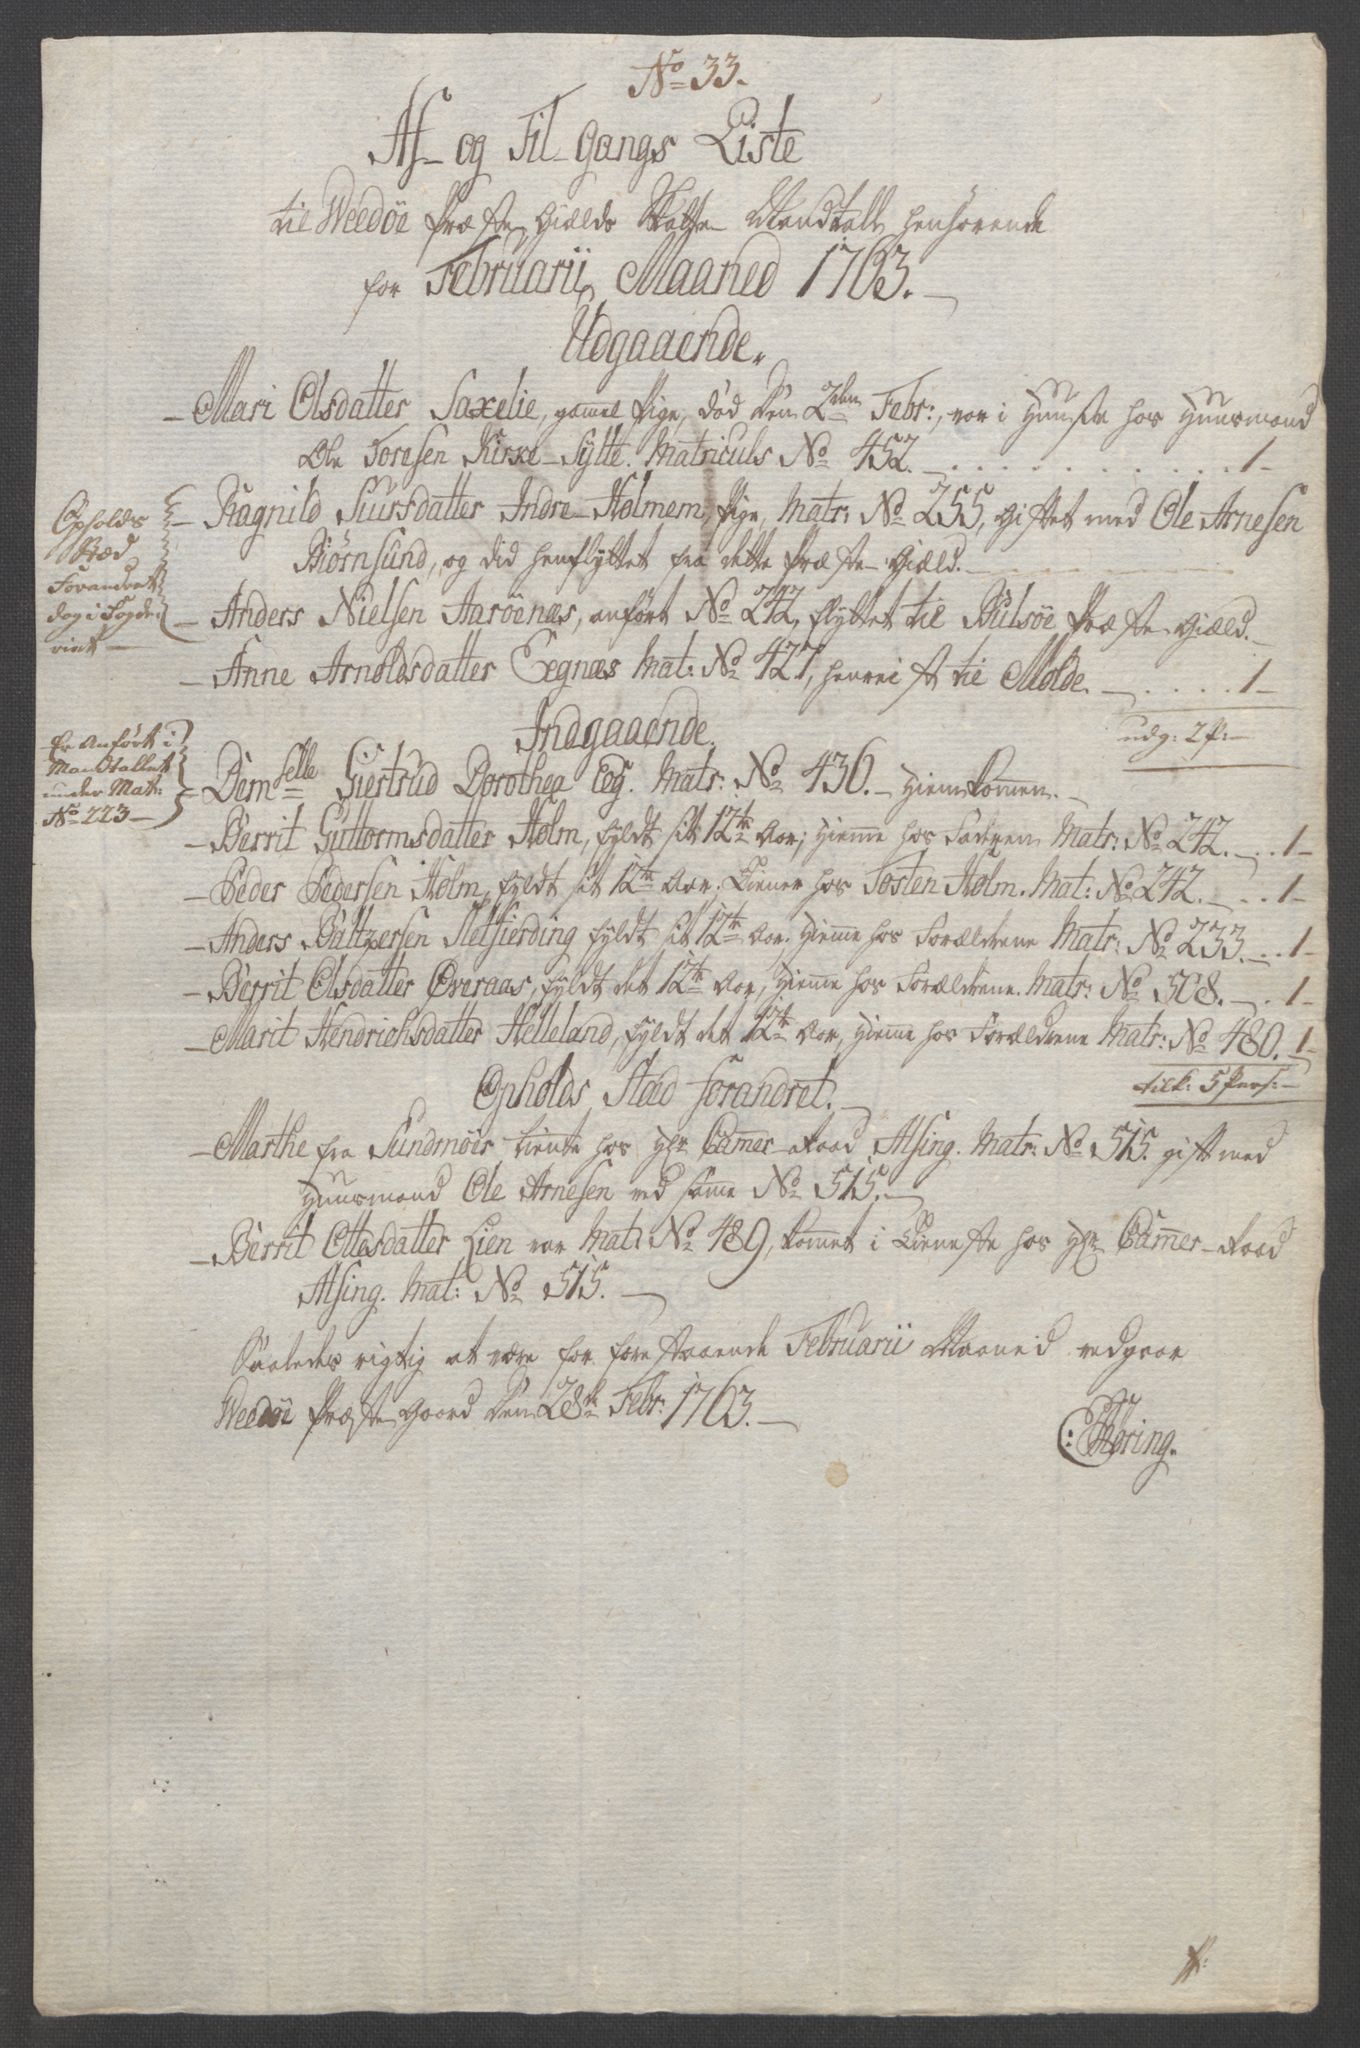 No 33.
Af- og Til-Gangs Liste
til Weedöe Præste Giælds Skatte Mandtall henhörende
for Februarii Maaned 1763.
Udgaaende.
- Mari Olsdatter Saxelie, gamel Pige, död den 2den Febr:, var i Huuse hos Huusmand
Ole Toresen Kirke-Sylte. Matriculs No 452. - . . . . . . . . . . 1-
Opholds
Stæd
Forandret
dog i Fogde-
riet -
- Ragnild Siursdatter Indre-Holmem, Pige, Matr: No 255, giftet med Ole Arnesen
Biörnsund, og did henflyttet fra dette Præste-Giæld. -
- Anders Nielsen Aaröenæs, anfört No 242, flyttet til Bulsöe Præste Giæld. -
- Anne Arnoldsdatter Eegnæs Mat: No 427, henreist til Molde. - . . . . 1-
udg: 2 P: -
Indgaaende.
Er Anfört i
Mandtallet
under Matr:
No 223 -
- Demselle Giertrud Dorothea Eeg. Matr: No 436. - Hiemkommen. -
- Berrit Guttormsdatter Holm, fyldt sit 12te Aar; Hieme hos Faderen Matr: No 242. - . . 1-
- Peder Pedersen Holm, fyldt sit 12te Aar. Tiener hos Tosten Holm. Mat: No 242. - . . 1-
- Anders Baltzersen Nelsierding fyldt sit 12te Aar. Hieme hos Forældrene Matr: No 233. - . . 1-
- Berrit Olsdatter Överaas, fyldt det 12te Aar, Hieme hos Forældrene. Matr: No 508. - . 1-
- Marit Hendrichsdatter Helleland, fyldt det 12te Aar, Hieme hos Forældrene Matr: No 480. 1-
tilk: 5 Pers: -
Opholds Stæd forandret. -
- Marthe fra Sundmöer tiente hos Hr Camer-Raad Alsing. Matr: No 515. gift med
Huusmand Ole Arnesen ved same No 515. -
- Berrit Ottesdatter Lien var Mat: No 489, kommet i Tieneste hos Hr Camer-Raad
Alsing. Mat: No 515. -
Saaledes rigtig at være for forestaaende Februarii Maaned vedgaar
Weedöe Præste Gaard den 28de Febr: 1763. -
C: Thöring.